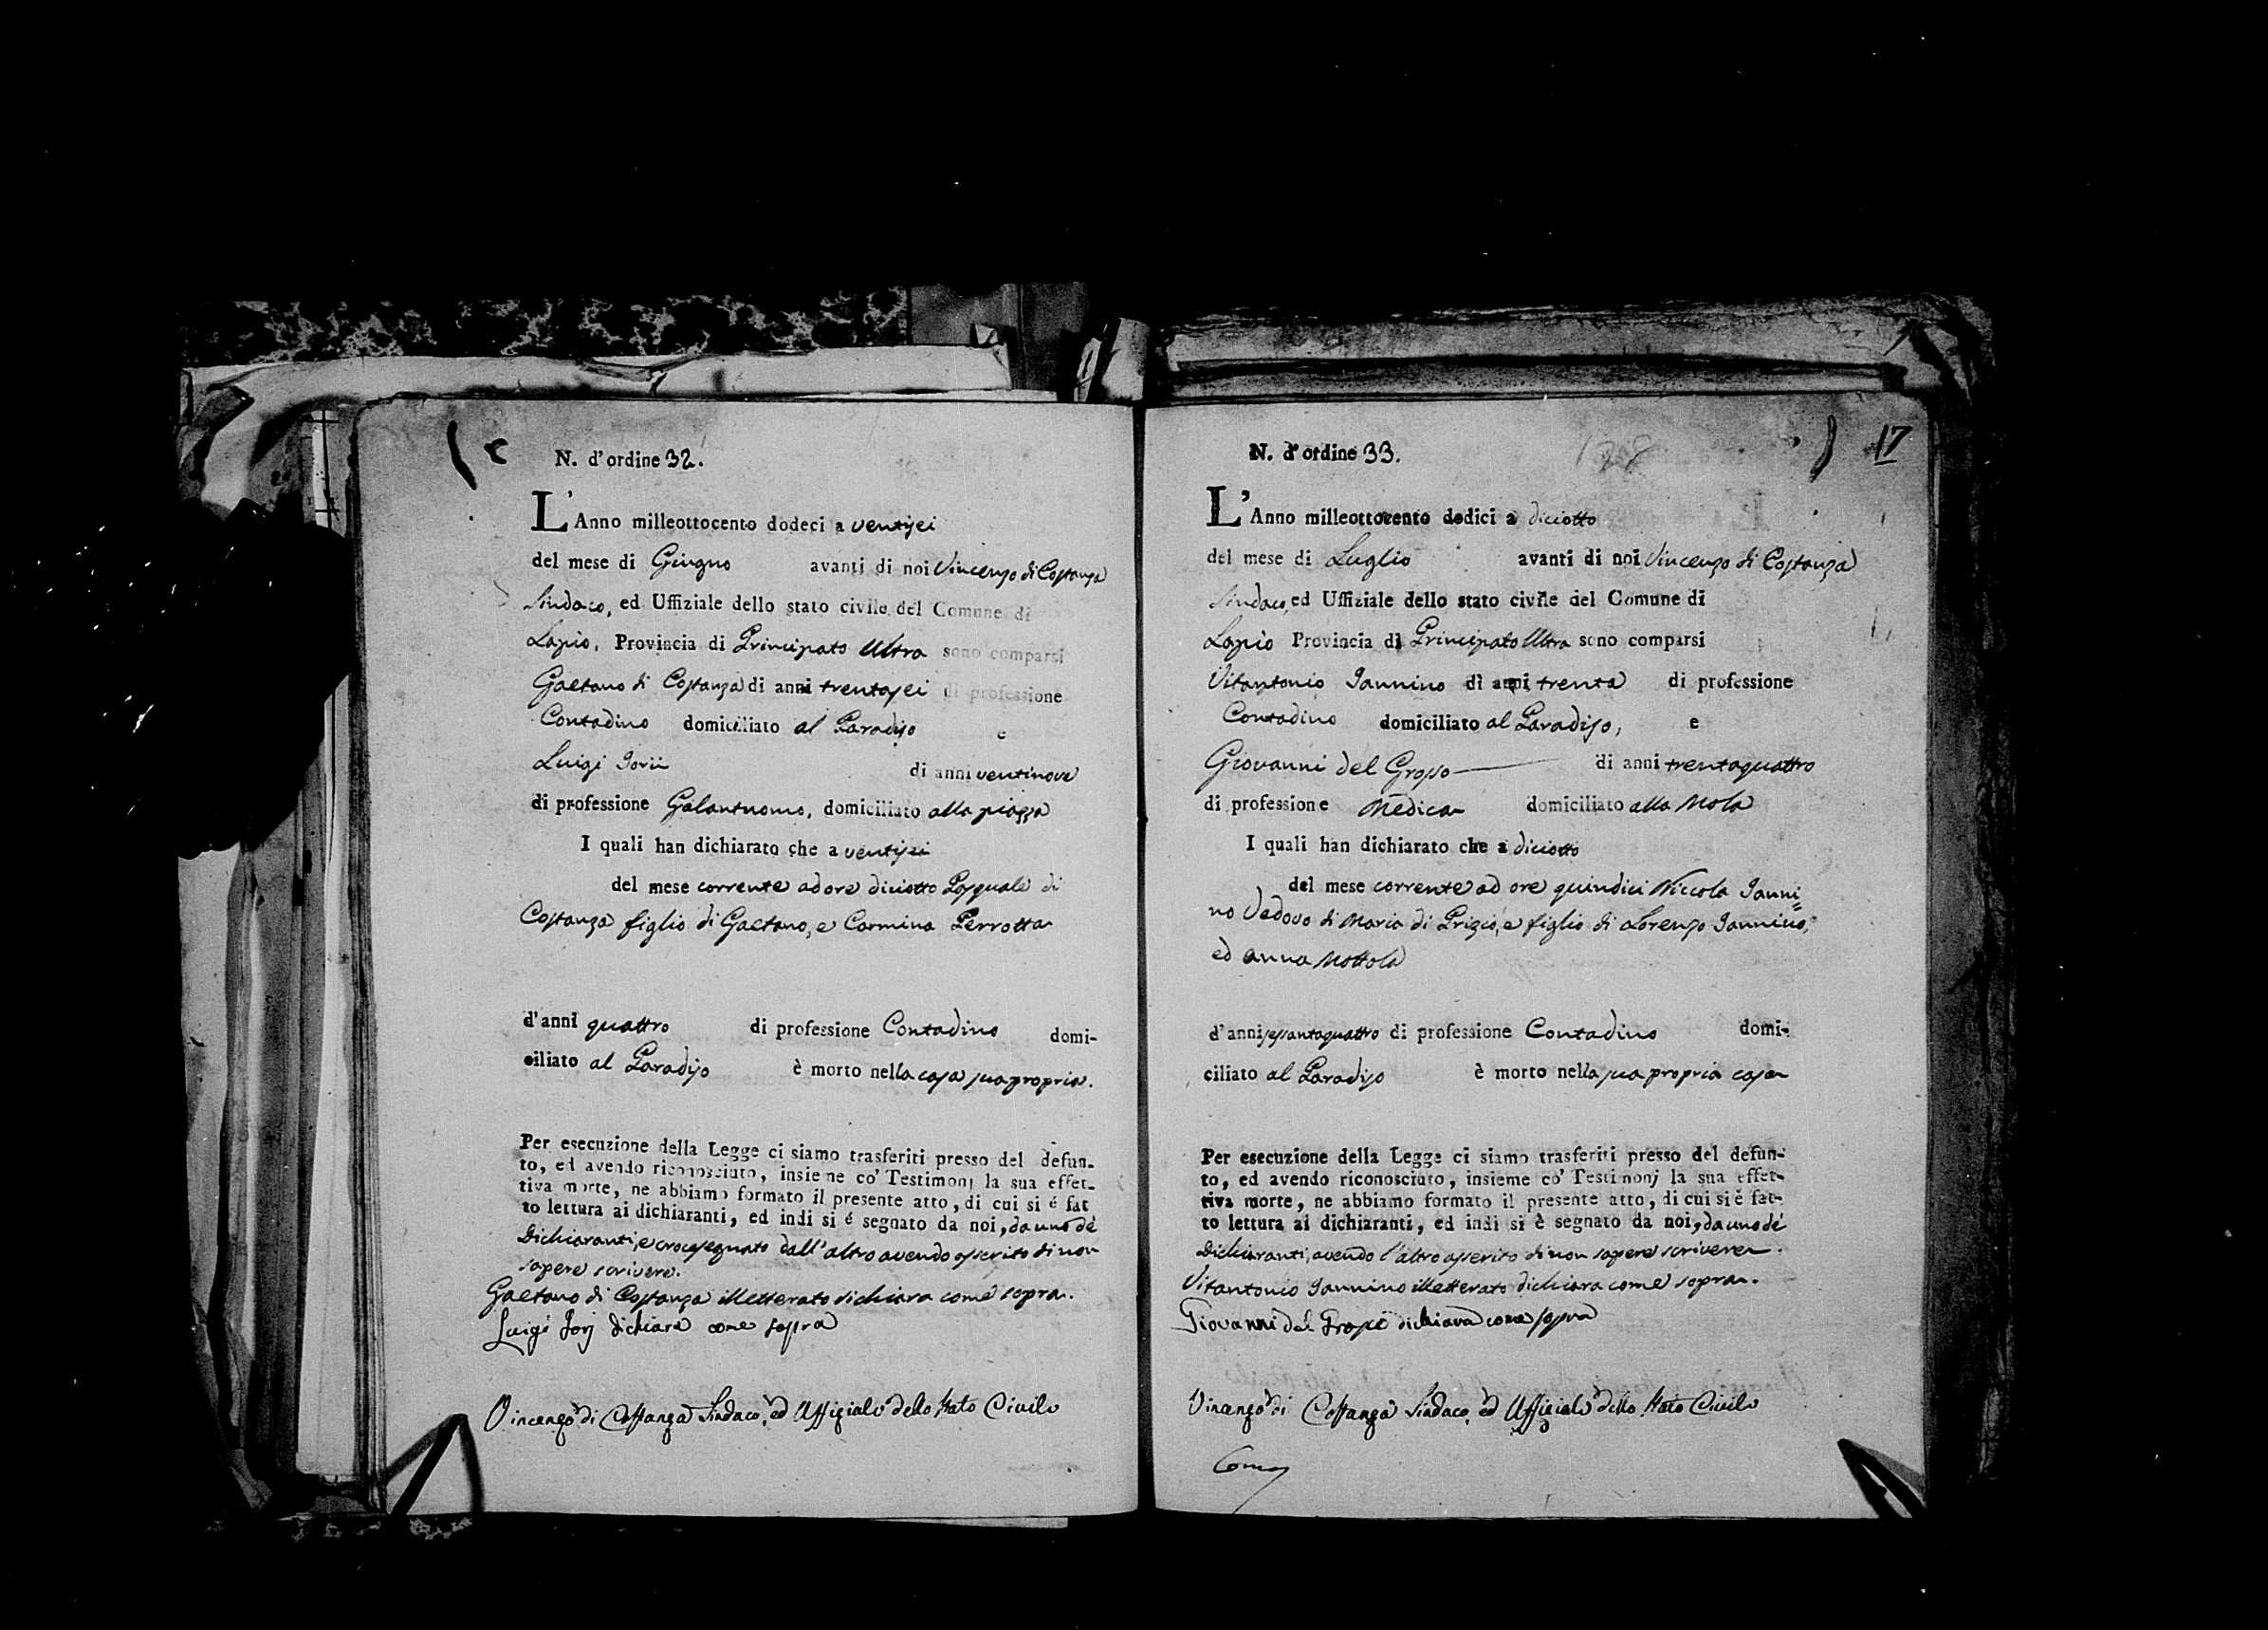 N. d'ordine 32.
L'Anno milleottocento dodeci a ventisei
del mese di Giugno avanti di noi Vincenzo di Costanza
Sindaco, ed Uffiziale dello stato civile del Comune di
Lapio, Provincia di Principato Ultra sono comparsi
Gaetano di Costanza di anni trentasei di professione
Contadino domiciliato al Paradiso e
Luigi Iorii di anni ventinove
di professione Galantuomo, domiciliato alla piazza
I quali han dichiarato che a ventisei
del mese corrente ad ore diciotto Pasquale di
Costanza figlio di Gaetano, e Carmina Perrotta
d'anni quattro di professione Contadino domi-
ciliato al Paradiso è morto nella casa sua propria.
Per esecuzione della Legge ci siamo trasferiti presso del defun-
to, ed avendo riconosciuto, insieme co' Testimonj la sua effet-
tiva morte, ne abbiamo formato il presente atto, di cui si é fat
to lettura ai dichiaranti, ed indi si é segnato da noi, da uno de'
Dichiaranti, e crocesegnato dall'altro avendo asserito di non
sapere scrivere.
Gaetano di Costanza illetterato dichiara come sopra.
Luigi Iorj dichiara come sopra
Vincenzo di Costanza Sindaco, ed Uffiziale dello Stato Civile
17
N. d'ordine 33.
L'Anno milleottocento dodici a diciotto
del mese di Luglio avanti di noi Vincenzo di Costanza
Sindaco, ed Uffiziale dello stato civile del Comune di
Lapio Provincia di Principato Ultra sono comparsi
Vitantonio Iannino di anni trenta di professione
Contadino domiciliato al Paradiso, e
Giovanni del Grosso di anni trentaquattro
di professione Medico domiciliato alla Mola
I quali han dichiarato che a diciotto
del mese corrente ad ore quindici Niccola Ianni=
no Vedovo di Maria di Prizio, e figlio di Lorenzo Iannino,
ed Anna Mottola
d'anni sessantaquattro di professione Contadino domi-
ciliato al Paradiso è morto nella sua propria casa
Per esecuzione della Legge ci siamo trasferiti presso del defun-
to, ed avendo riconosciuto, insieme co' Testimonj la sua effet-
tiva morte, ne abbiamo formato il presente atto, di cui si è fat-
to lettura ai dichiaranti, ed indi si è segnato da noi, da uno de'
Dichiaranti, avendo l'altro asserito di non sapere scrivere.
Vitantonio Iannino illetterato dichiara come sopra.
Giovanni del Grosso dichiara come sopra
Vincenzo di Costanza Sindaco, ed Uffiziale dello Stato Civile